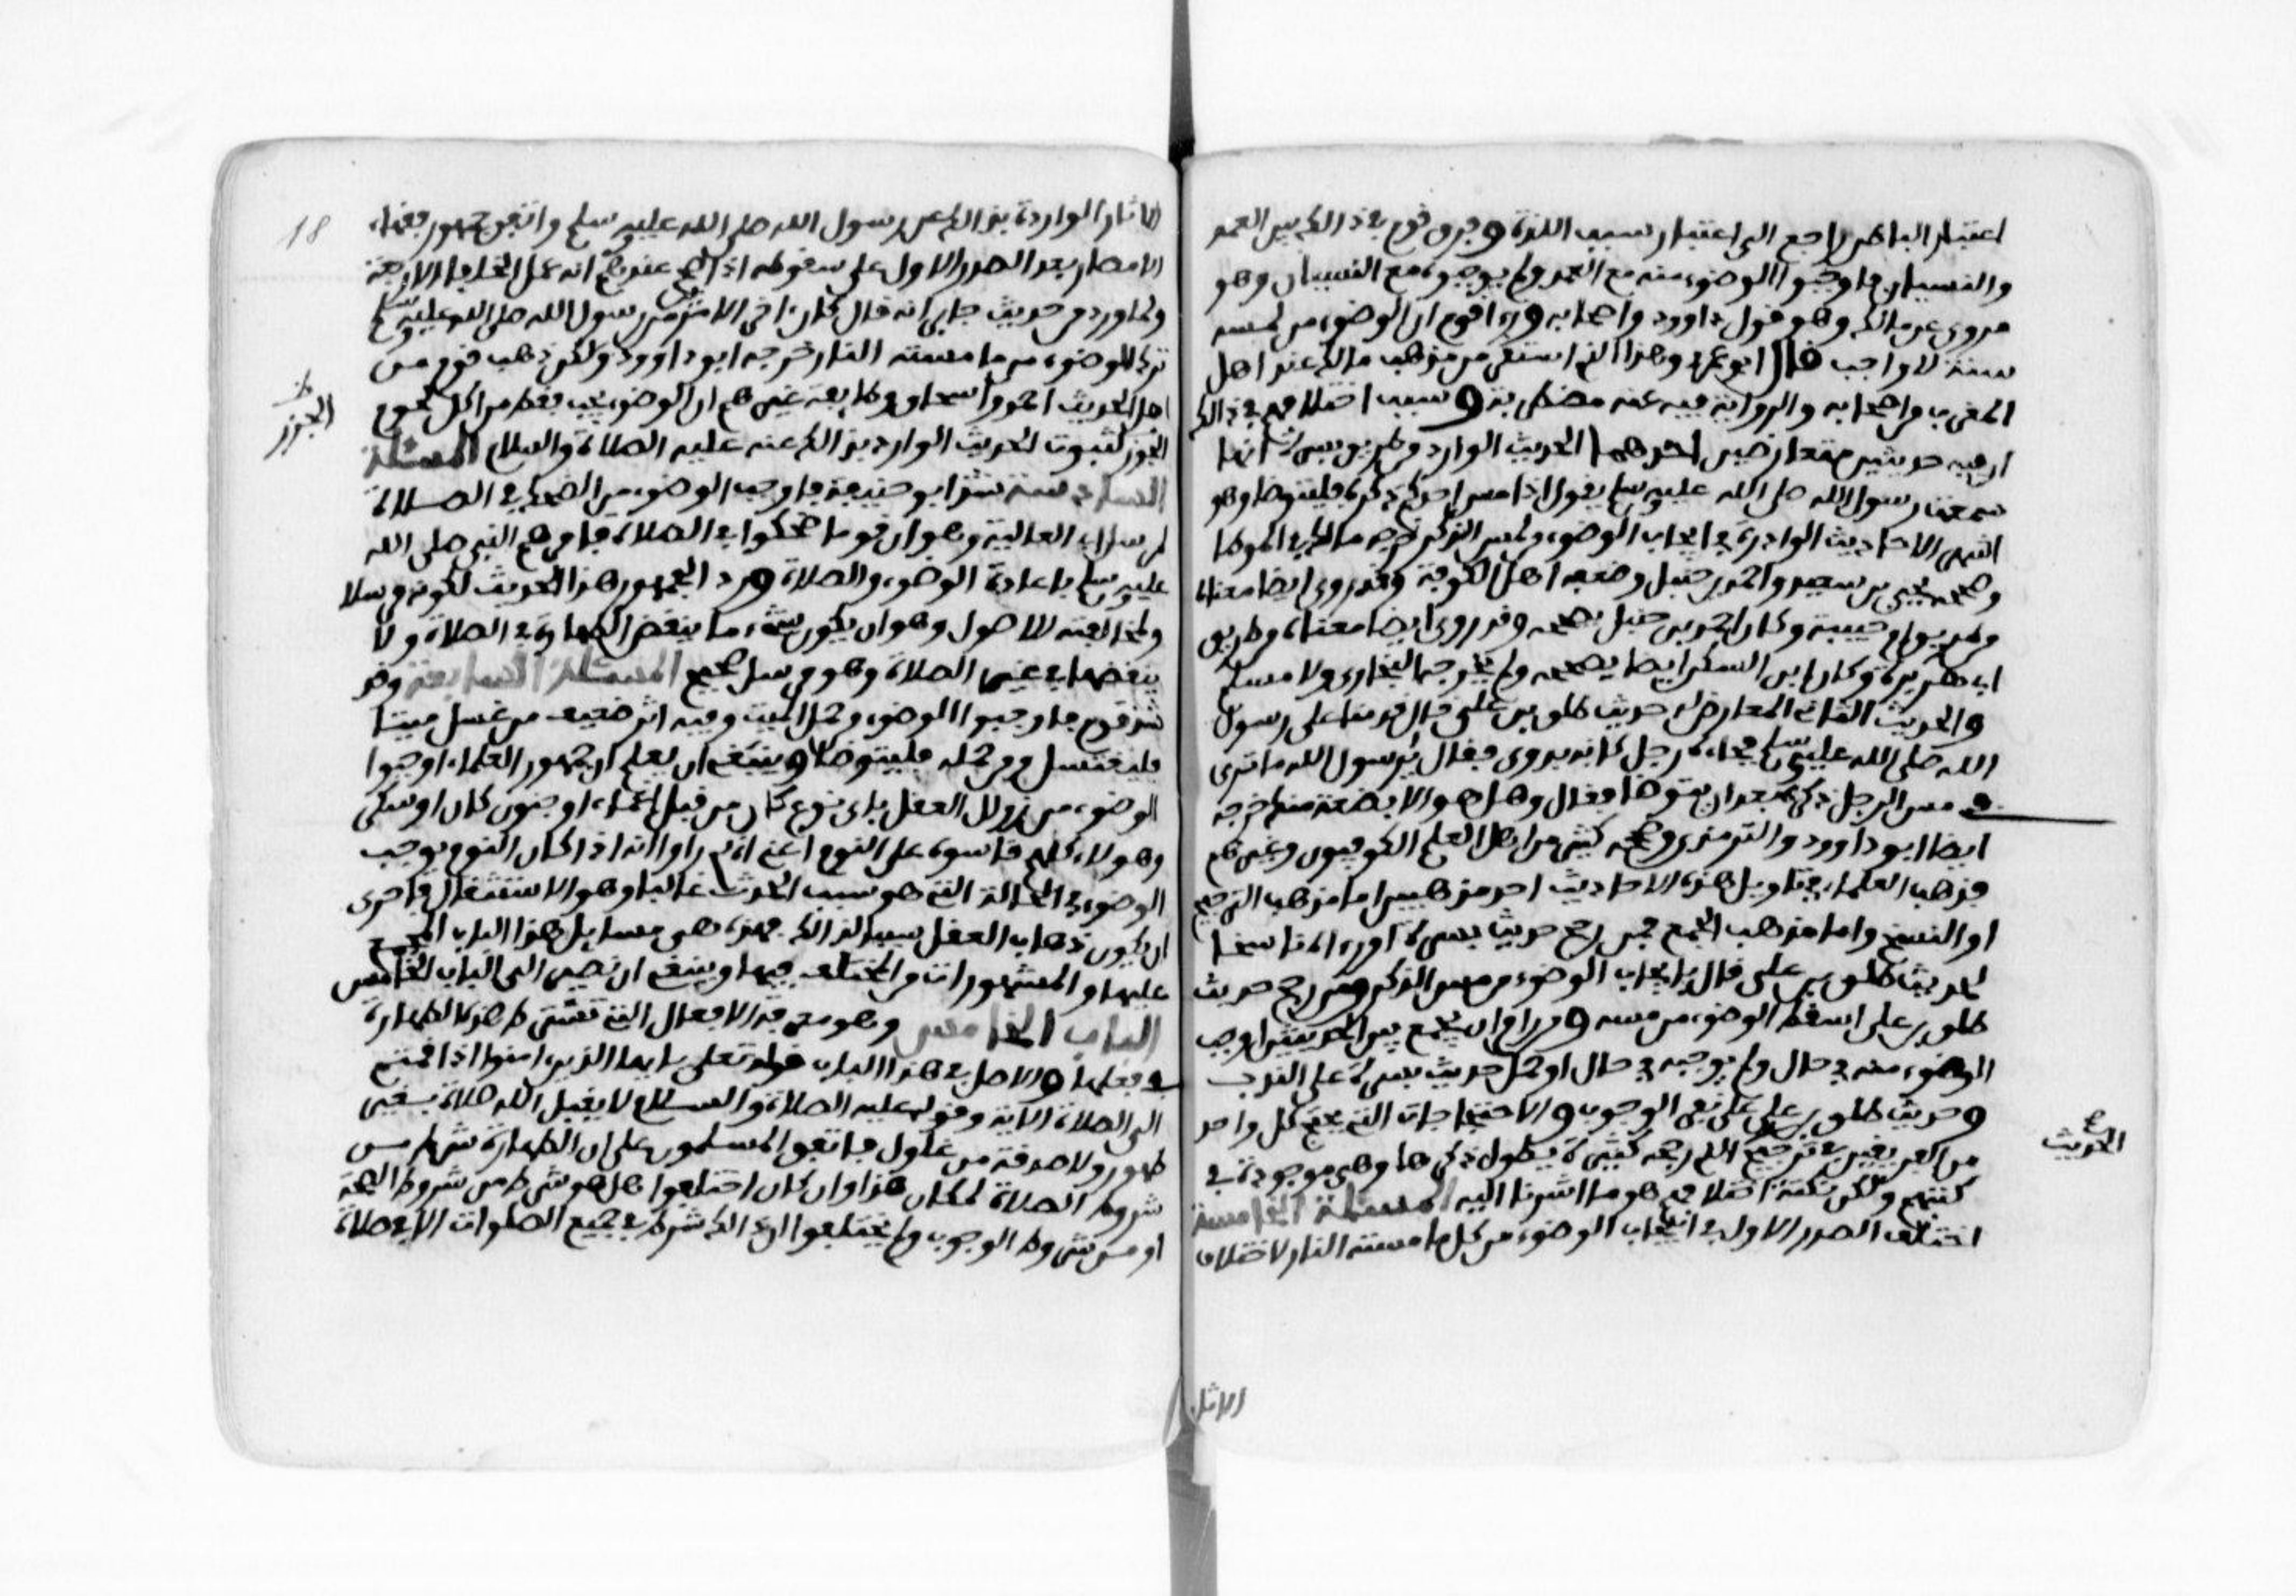 اعتبار الباطن راجع الى اعتبار سبب اللذة وفرق قوم في ذالك بين العمد
والنسيان فاوجبوا الوضوء منه مع العمد ولم يوجبوه مع النسيان وهو
مروي عن مالك وهو قول داوود واصحابه وراى قوم ان الوضوء من لمسه
سنة لا واجب قال ابو عمر وهذا الذي استقر من مذهب مالك عند اهل
المغرب من اصحابه والرواية فيه عنه مضطربة وسبب اختلافهم في ذالك
ان فيه حديثين متعارضين احدهما الحديث الوارد من طريق بسرة انها
سمعت رسول الله صلى الله عليه وسلم يقول اذا مس احدكم ذكره فليتوضا وهو
اشهر الاحاديث الواردة في ايجاب الوضوء من مس الذكر خرجه مالك في الموطا
وصححه يحيى بن سعيد واحمد بن حنبل وضعفه اهل الكوفة وقد روي ايضا معناه
من طريق ام حبيبة وكان احمد بن حنبل يصححه وقد روي ايضا معناه من طريق
ابي هريرة وكان ابن السكن ايضا يصححه ولم يخرجه البخاري ولا مسلم
والحديث الثاني المعارض له حديث طلق بن علي قال قدمنا على رسول
الله صلى الله عليه وسلم فجاءه رجل كانه بدوي فقال يا رسول الله ما ترى
في مس الرجل ذكره بعد ان يتوضا فقال وهل هو الا بضعة منه خرجه
ايضا ابو داوود والترمذي وصححه كثير من اهل العلم الكوفيون وغيرهم
فذهب العلماء في تاويل هذه الاحاديث احد مذهبين اما مذهب الترجيح
او النسخ واما مذهب الجمع فمن رجح حديث بسرة او رءاه ناسخا
لحديث طلق بن علي قال بايجاب الوضوء من مس الذكر ومن رجح حديث
طلق بن علي اسقط الوضوء من مسه ومن رام ان يجمع بين الحديثين اوجب
الوضوء منه في حال ولم يوجبه في حال او حمل حديث بسرة على الندب
وحديث طلق بن علي على نفي الوجوب والاحتجاجات التي يحتج كل واحد
من الفريقين في ترجيح الذي رجحه كثيرة يطول ذكرها وهي موجودة في
كتبهم ولكن نكتة اختلافهم هو ما اشرنا اليه المسئلة الخامسة
اختلف الصدر الاول في ايجاب الوضوء من كل ما مسته النار لاختلاف
الحديث
الاثار
18
الاثار الواردة في ذالك عن رسول الله صلى الله عليه وسلم واتفق جمهور فقهاء
الامصار بعد الصدر الاول على سقوطه اذ صح عندهم انه عمل الخلفاء الاربعة
ولما ورد من حديث جابر انه قال كان اخر الامرين من رسول الله صلى الله عليه وسلم
ترك الوضوء من ما مسته النار خرجه ابو داوود ولكن ذهب قوم من
اهل الحديث احمد واسحاق وطايفة غيرهم ان الوضوء يجب فقط من اكل لحوم
الجزر لثبوت الحديث الوارد بذالك عنه عليه الصلاة والسلام المسئلة
السادسة شذ ابو حنيفة فاوجب الوضوء من الضحك في الصلاة
لمرسل ابي العالية وهو ان قوما ضحكوا في الصلاة فامرهم النبي صلى الله
عليه وسلم باعادة الوضوء والصلاة ورد الجمهور هذا الحديث لكونه مرسلا
ولمخالفته للاصول وهو ان يكون شيء ما ينقض الطهارة في الصلاة ولا
ينقضها في غير الصلاة وهو مرسل صحيح المسئلة السابعة وقد
شذ قوم فاوجبوا الوضوء من حمل الميت وفيه اثر ضعيف من غسل ميتا
فليغتسل ومن حمله فليتوضا وينبغي ان يعلم ان جمهور العلماء اوجبوا
الوضوء من زوال العقل باي نوع كان من قبل اغماء او جنون كان او سكر
وهولاء كلهم قاسوه على النوم اعني انهم راوا انه اذا كان النوم يوجب
الوضوء في الحالة التي هو سبب الحدث غالبا وهو الاستثقال فاحرى
ان يكون ذهاب العقل سببا لذالك فهذه هي مسايل هذا الباب المجمع
عليها والمشهورات من المختلف فيها وينبغي ان نصير الى الباب الخامس
الباب الخامس وهو معرفة الافعال التي تشترط هذه الطهارة
في فعلها والاصل في هذا الباب قوله تعلى يايها الذين امنوا اذا قمتم
الى الصلاة الاية وقوله عليه الصلاة والسلام لا يقبل الله صلاة بغير
طهور ولا صدقة من غلول فاتفق المسلمون على ان الطهارة شرط من
شروط الصلاة لمكان هذا وان كان اختلفوا هل هو شرط من شروط الصحة
او من شروط الوجوب ولم يختلفوا ان ذالك شرط في جميع الصلوات الا في صلاة
الجزر